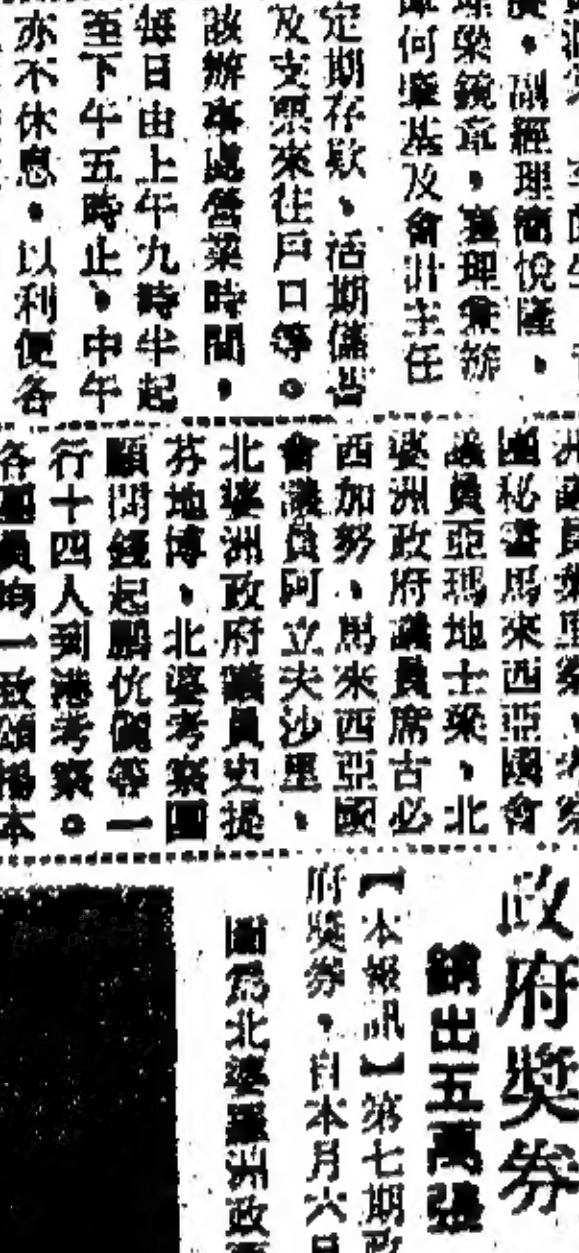 副經理簡悅隆、
梁鏡章，襄理兼辦
何肇基及會計主任
定期存款、活期儲蓄
及支票來往戶口等。
該辦事處營業時間，
每日由上午九時半起
至下午五時止、中午
亦不休息。以利便各
團秘書馬來西亞國會
議員亞瑪地士梁、北
婆洲政府議員席古必
西加努、馬來西亞國
會議員阿立夫沙里、
北婆洲政府議員史提
芬地博、北婆考察團
顧問鍾起鵬伉儷等一
行十四人到港考察。
各團員均一致頌揚本
政府獎券
銷出五萬張
【本報訊】第七期政
府獎券，自本月六日
圖為北婆羅洲政